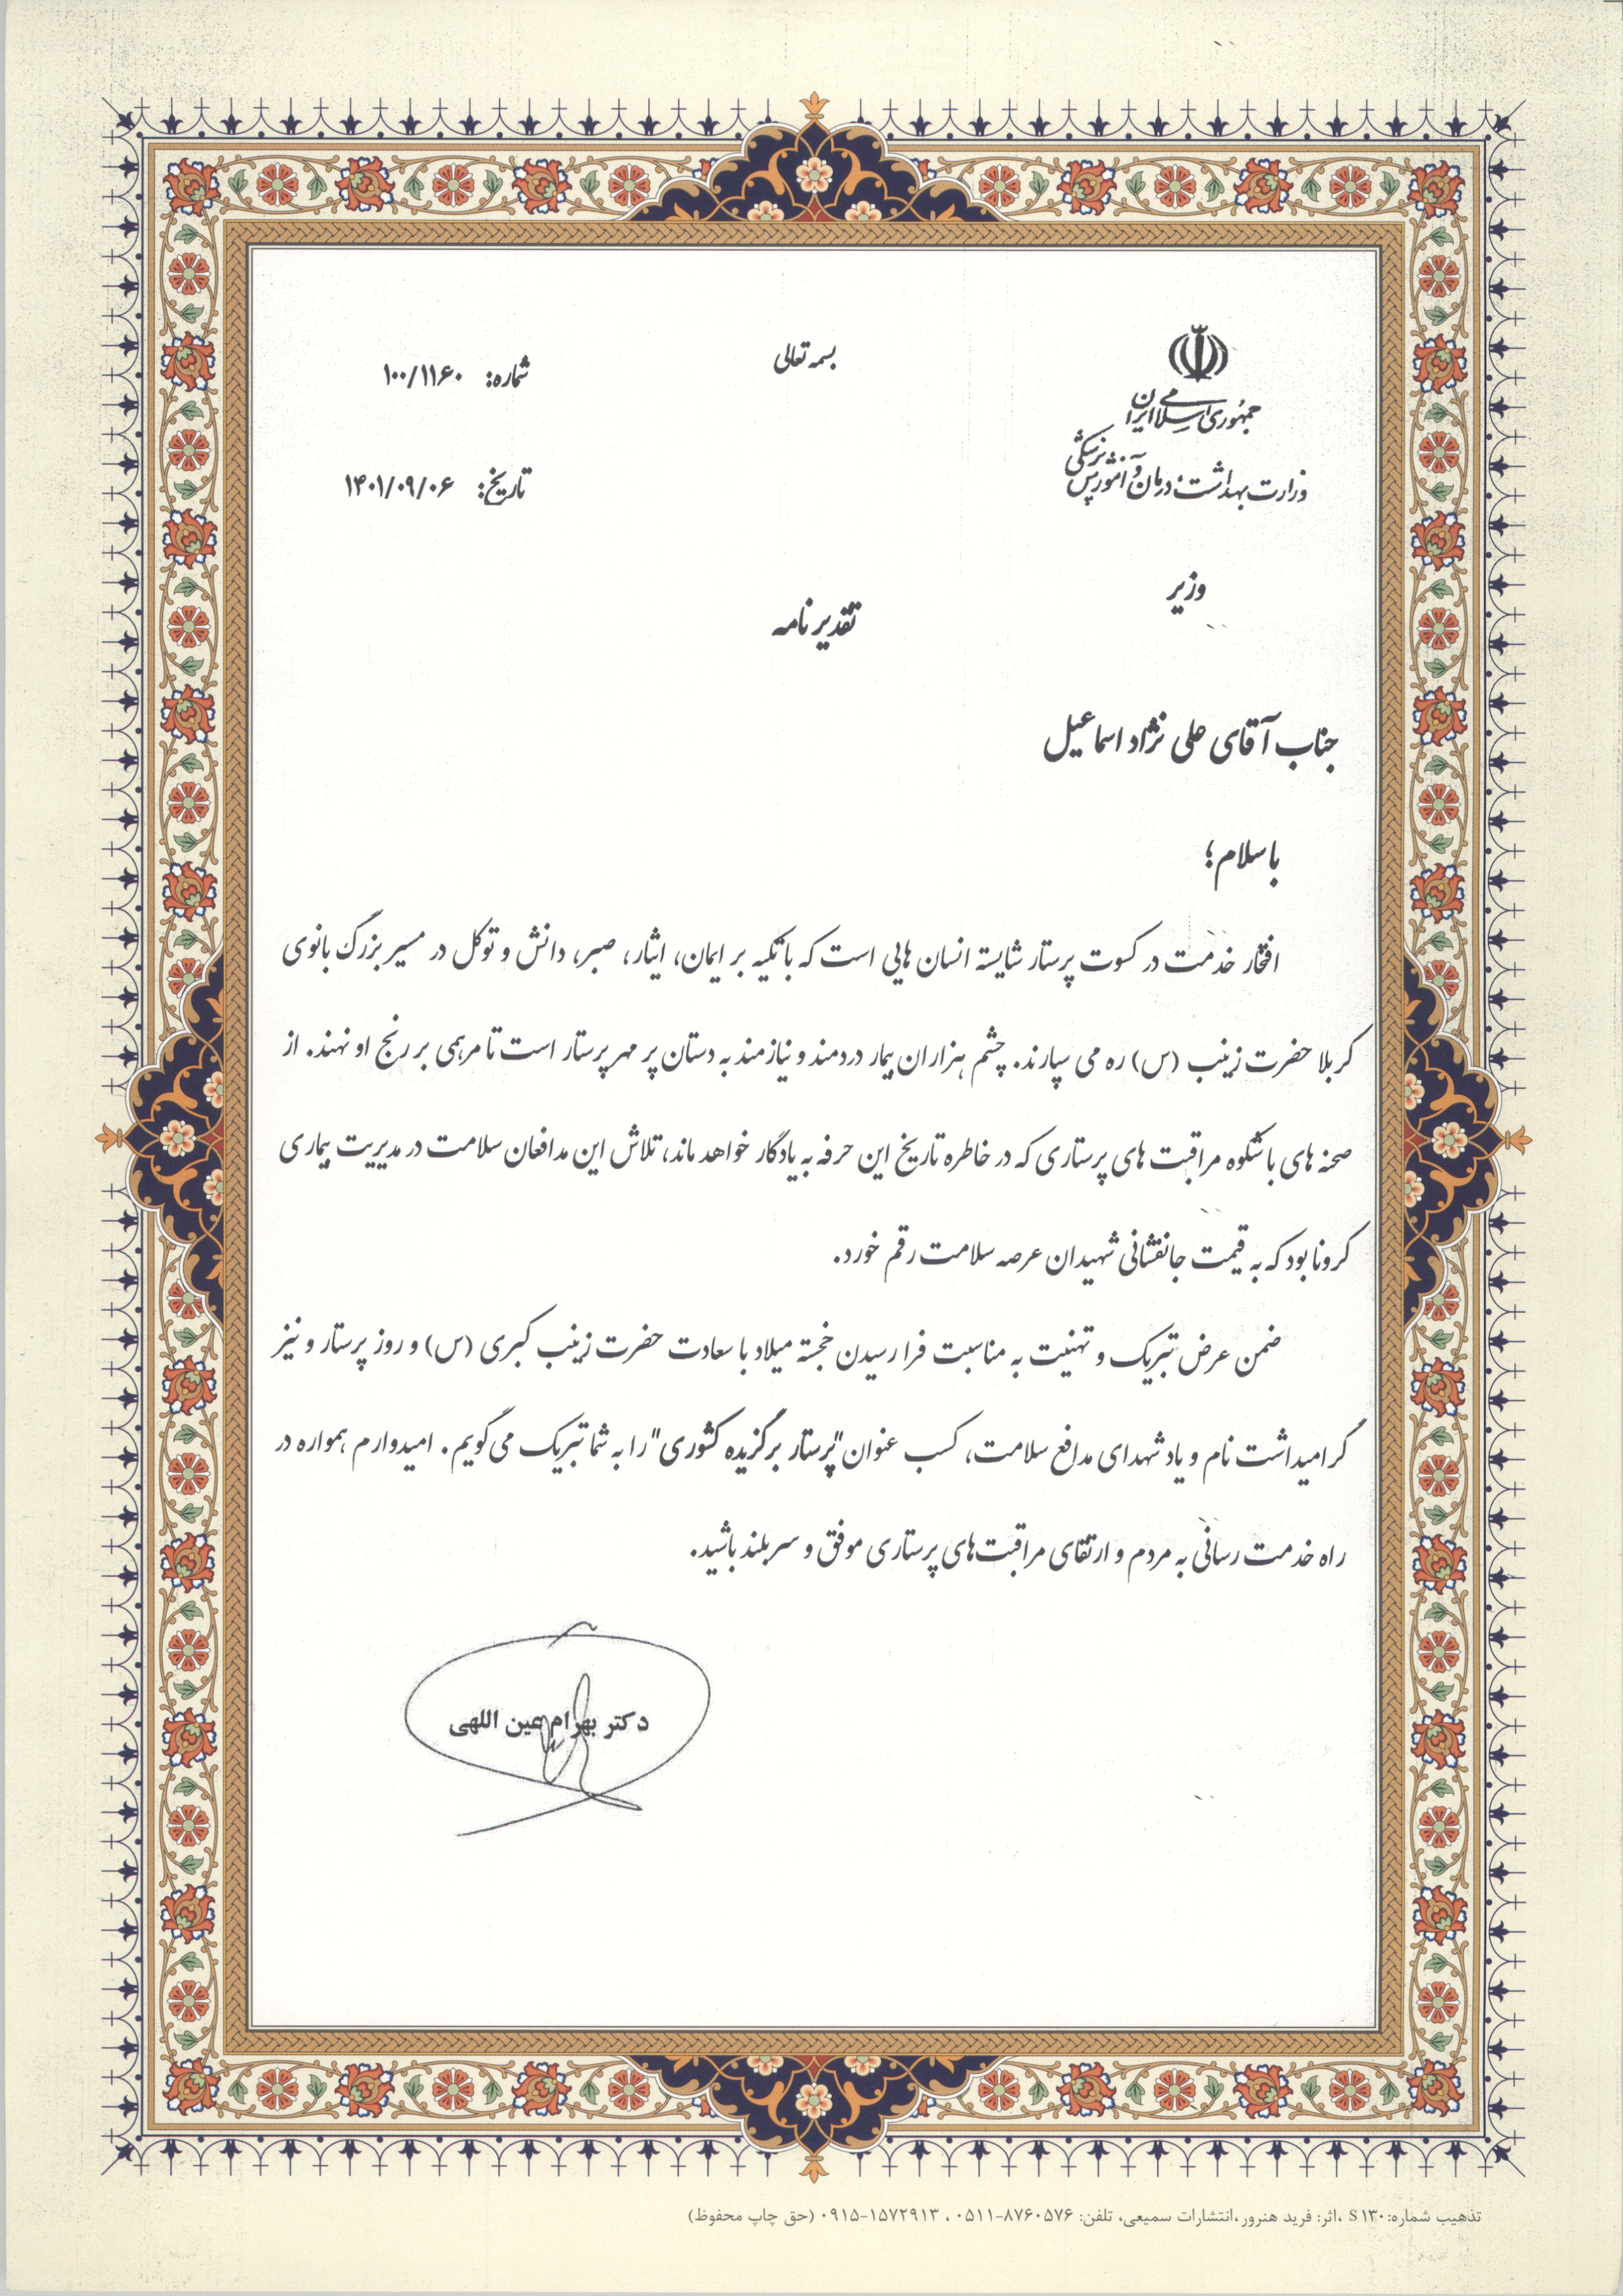 بسمه تعالی
جمهوری اسلامی ایران
وزارت بهداشت، درمان و آموزش پزشکی
وزیر
شماره: ۱۰۰/۱۱۶۰
تاریخ: ۱۴۰۱/۰۹/۰۶
تقدیر نامه
جناب آقای علی نژاد اسماعیل
با سلام؛
افتخار خدمت در کسوت پرستار شایسته انسان هایی است که با تکیه بر ایمان، ایثار، صبر، دانش و توکل در مسیر بزرگ بانوی
کربلا حضرت زینب (س) ره می سپارند. چشم هزاران بیمار دردمند و نیازمند به دستان پر مهر پرستار است تا مرهمی بر رنج او نهند. از
صحنه های با شکوه مراقبت های پرستاری که در خاطره تاریخ این حرفه به یادگار خواهد ماند، تلاش این مدافعان سلامت در مدیریت بیماری
کرونا بود که به قیمت جانفشانی شهیدان عرصه سلامت رقم خورد.
ضمن عرض تبریک و تهنیت به مناسبت فرا رسیدن خجسته میلاد با سعادت حضرت زینب کبری (س) و روز پرستار و نیز
گرامیداشت نام و یاد شهدای مدافع سلامت، کسب عنوان "پرستار برگزیده کشوری" را به شما تبریک می گویم. امیدوارم همواره در
راه خدمت رسانی به مردم و ارتقای مراقبت های پرستاری موفق و سربلند باشید.
دکتر بهرام عین اللهی
تذهیب شماره: S۱۳۰ ،اثر: فرید هنرور،انتشارات سمیعی، تلفن: ۸۷۶۰۵۷۶-۰۵۱۱ ، ۱۵۷۲۹۱۳-۰۹۱۵ (حق چاپ محفوظ)